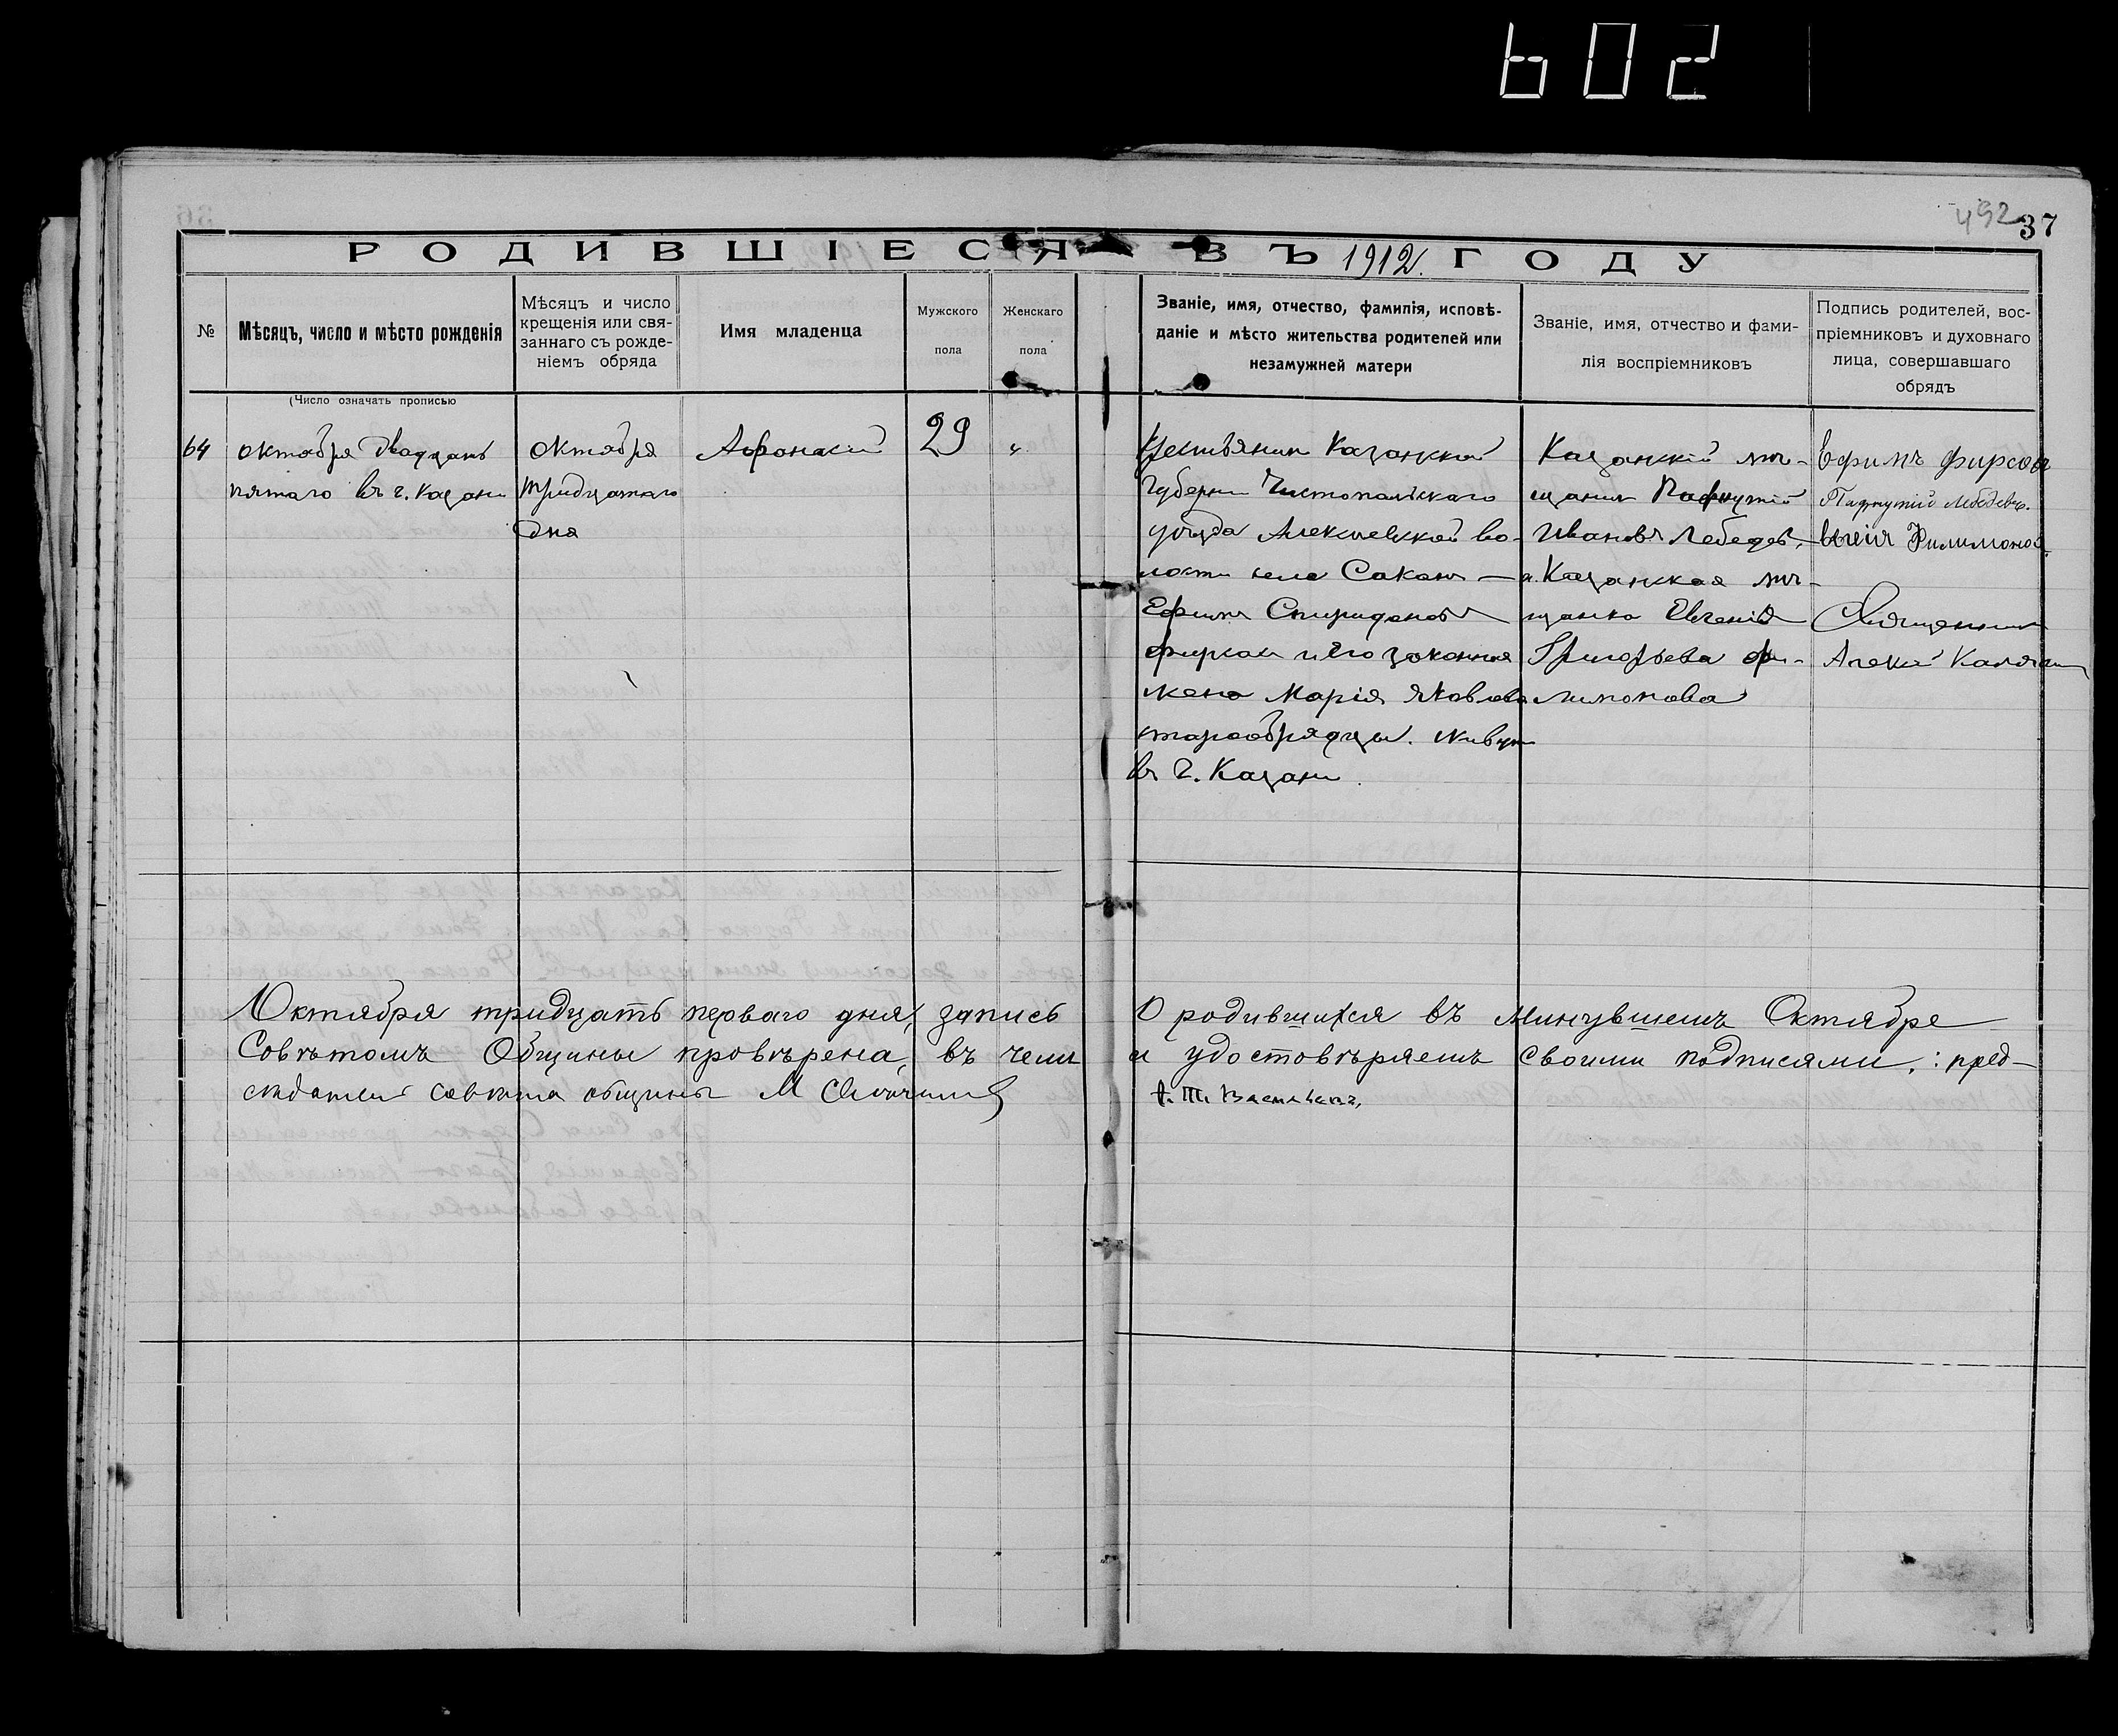 602
492
37
РОДИВШІЕСЯ ВЪ 1912 ГОДУ
№
Мѣсяцъ, число и мѣсто рожденія
Мѣсяцъ и число
крещенія или свя-
заннаго съ рожде-
ніемъ обряда
Имя младенца
Мужского
пола
Женскаго
пола
Званіе, имя, отчество, фамилія, исповѣ-
даніе и мѣсто жительства родителей или
незамужней матери
Званіе, имя, отчество и фами-
лія воспріемниковъ
Подпись родителей, вос-
пріемниковъ и духовнаго
лица, совершавшаго
обрядъ
(Число означать прописью
64
октября двадцать
пятаго въ г. Казани
октября
тридцатаго
дня
Афонасій
29
"
Крестьянин Казанской
губерни Чистопольскаго
уѣзда Алексеевской во-
лости села Сакан
Ефим Спиридонов
Фирсов и его законная
жена Марія Яковлева
старообрядцы. Живут
въ г. Казани.
Казанскій мѣ-
щанин Пафнутій
Ивановъ Лебедев,
и Казанская мѣ-
щанка Евгенія
Григорьева Фи-
лимонова
Ефимъ Фирсовъ
Пафнутій Лебедевъ.
Филимонов
Священник
Алексѣй Калягин
Октября тридцать перваго дня, запись
Совѣтомъ Общины провѣрена, въ чем
О родившихся въ минувшемъ Октябре
и удостовѣряемъ своими подписями: пред-
седатель совѣта общины М
Васильевъ,